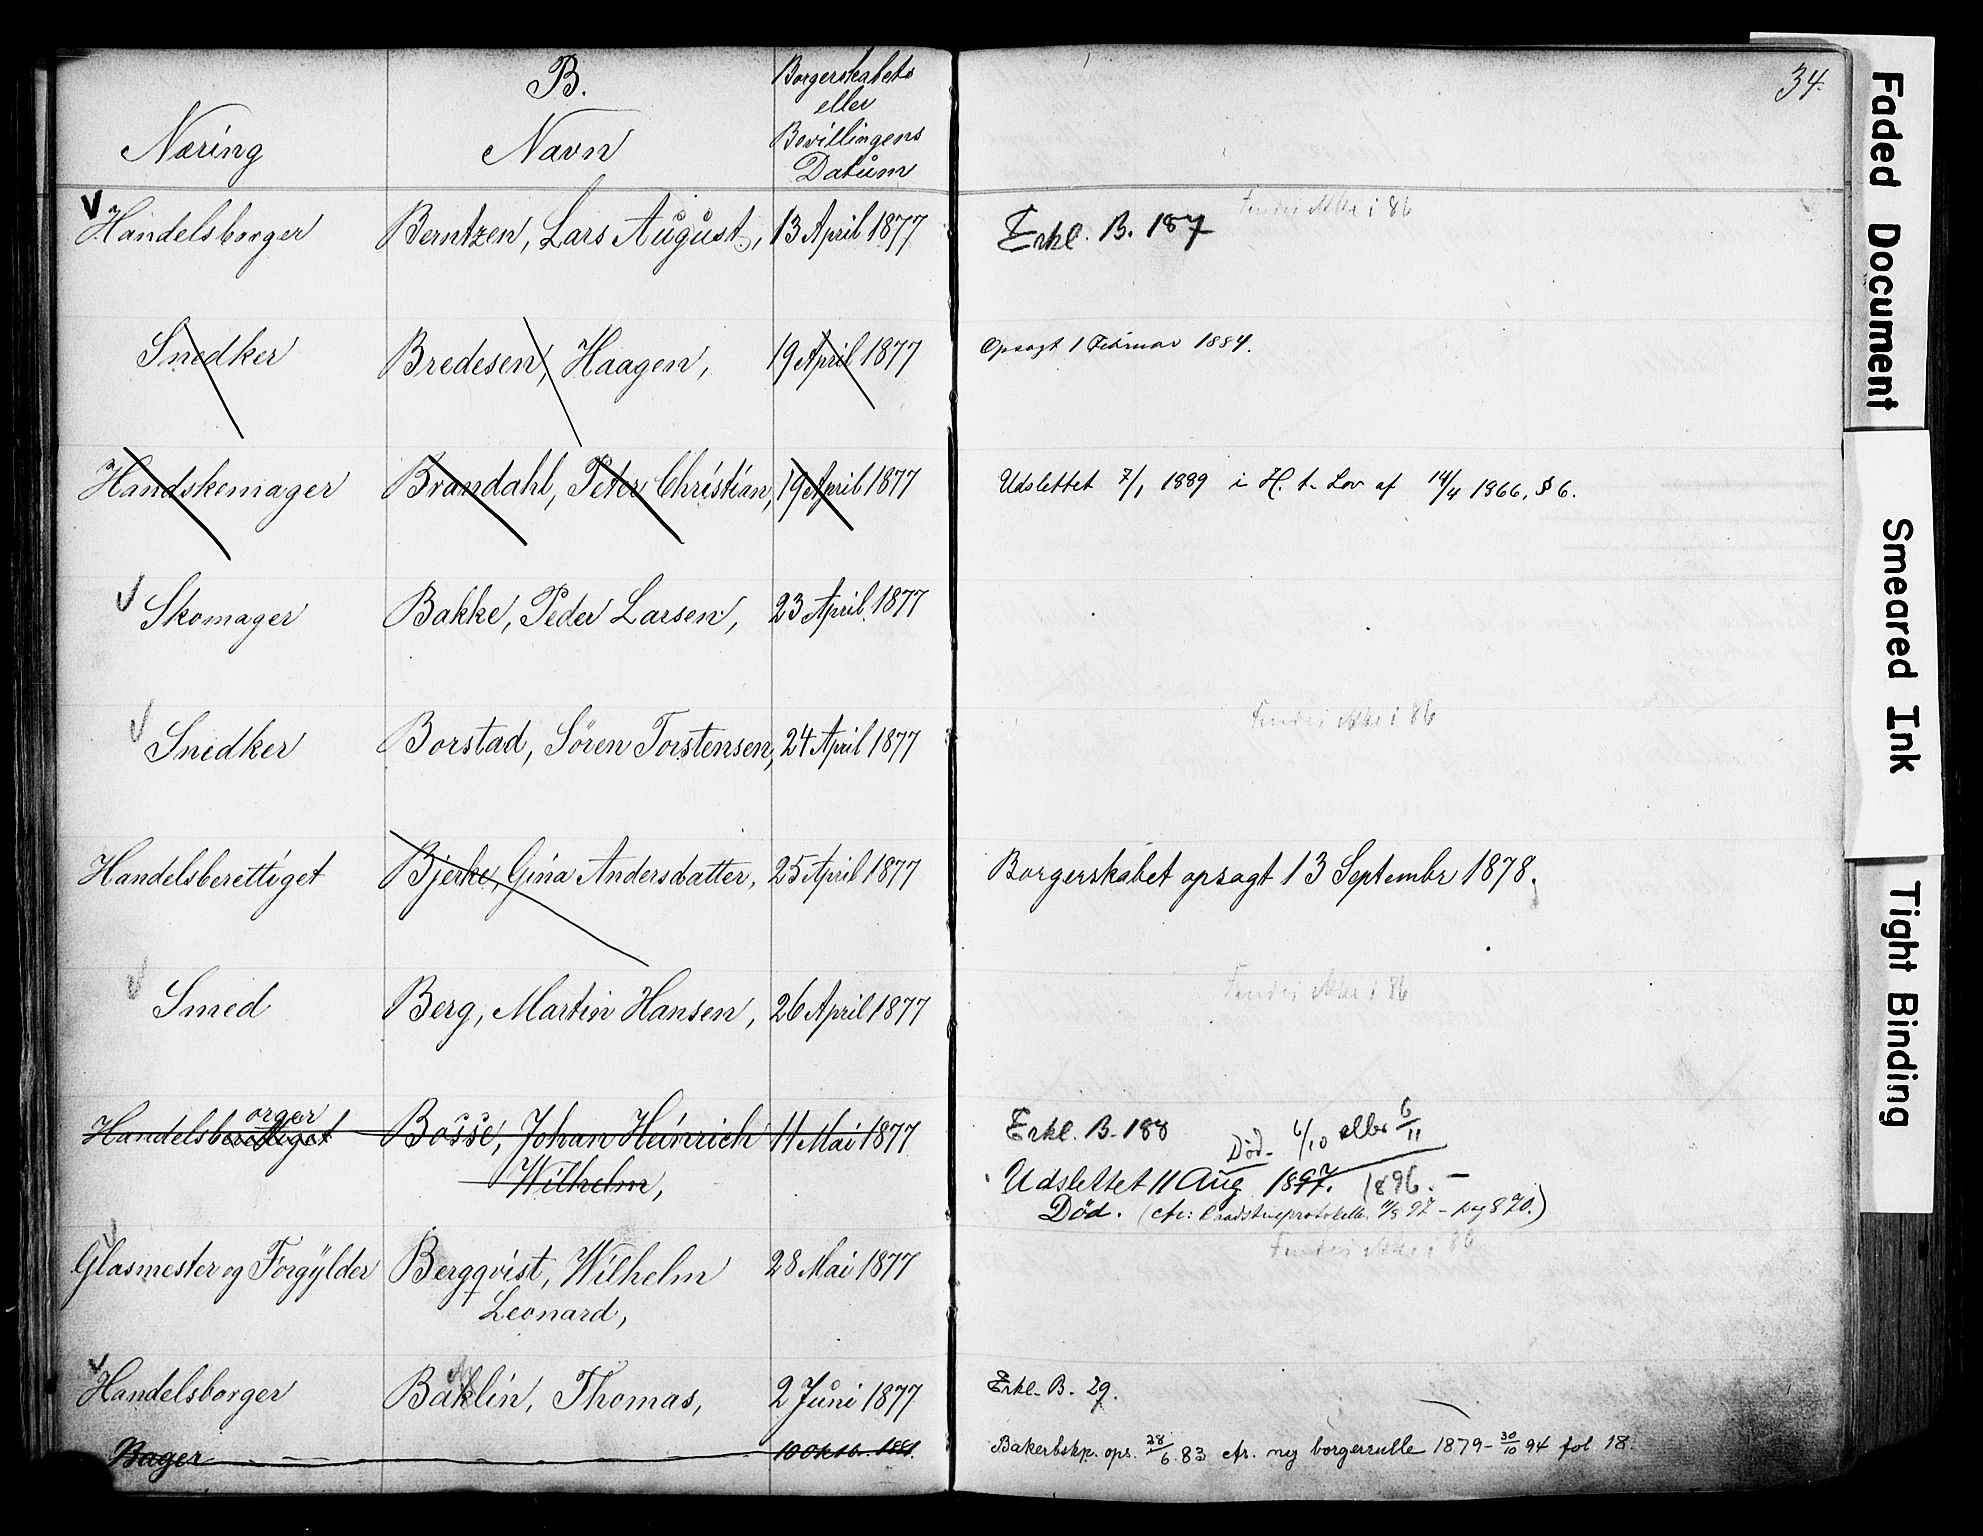 B.
Næring
Navn
Borgerskabets
eller
Bevillingens
Datum
34.
Handelsborger Berntzen, Lars August, 13 April 1877 Erkl. B. 187
Findes ikke i 86
Snedker Bredesen, Haagen, 19 April 1877 Opsagt 1 Februar 1884.
Handskemager Brandahl, Peter Christian, 19 April 1877 Udslettet 7/1 1889 i H. t. Lov af 14/4 1866, § 6.
Skomager Bakke, Peder Larsen, 23 April 1877
Snedker Borstad, Sören Torstensen, 24 April 1877
Findes ikke i 86
Handelsberettiget Bjerke, Gina Andersdatter, 25 April 1877 Borgerskabet opsagt 13 Septembr 1878.
Smed Berg, Martin Hansen, 26 April 1877
Findes ikke i 86
orger
Handelsberettiget Bosse, Johan Heinrich 11 Mai 1877 Erkl. B. 188
Wilhelm,
Død. 6/10 eller 6/11
Udslettet 11 Aug 1897. 1896. –
Død. (cfr: 11/8 97 – pag 870.)
Glasmester og Forgylder Bergqvist, Wilhelm 28 Mai 1877
Leonard,
Findes ikke i 86
Handelsborger Baklin, Thomas, 2 Juni 1877 Erkl. B. 29.
Bager 10 Oktb. 1881. Bakerbskp. ops. 28/6 83 cfr. ny borgerrulle 1879–30/10 94 fol. 18.
Faded Document
Smeared Ink
Tight Binding